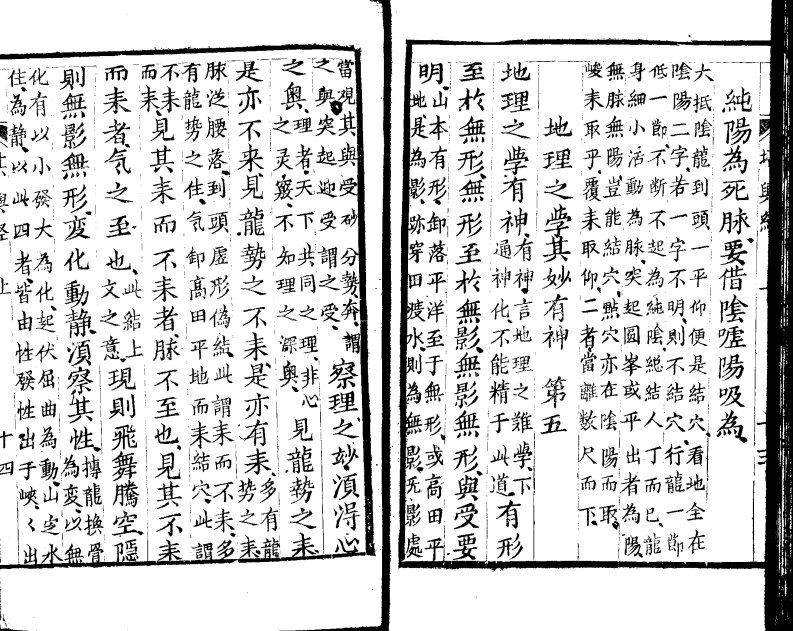 純陽為死脉、要借陰噓陽吸為、
大抵陰龍到頭一平仰便是結穴、看地全在
陰陽二字、若一字不明、則不結穴、行龍一節
低一節、不断不起為純陰、純結人丁而已、龍
身細小活動為脉、突起圓峯或平出者為陽
無脉無陽豈能結穴、點穴亦在陰陽而取、
峻耒取乎、覆耒取仰、二者當離數尺而下、
地理之學其妙有神 第五
地理之學有神、有神、言地理之難學下
通神化、不能精于此道、有形
至於無形、無形至於無影、無影無形、與受要
明、山本有形、卸落平洋至于無形、或高田平
地是為影跡、穿田渡水、則為無影、无影處
當观其與受砂 分勢奔、謂
之與突起迎受謂之受、察理之妙、須得心
之奥、理者、天下共同之理、非心
之灵竅、不如理之深奥、見龍勢之耒
是亦不来、見龍勢之不耒、是亦有耒、多有龍
勢之耒、
脉从腰落、到頭虚形偽結、此謂耒而不耒、多
有龍勢之住、气卸髙田平地而耒結穴、此謂
不耒
而耒、見其耒而不耒者、脉不至也、見其不耒
而耒者、气之至也、此結上
文之意、現則飛舞騰空、隱
則無影無形、変化動静、須察其性、摶龍换骨
為変、以無
化有以小發大為化、起伏屈曲為動、山㝎水
住為静、以此四者、皆由性發、性出于峽、く出
十四